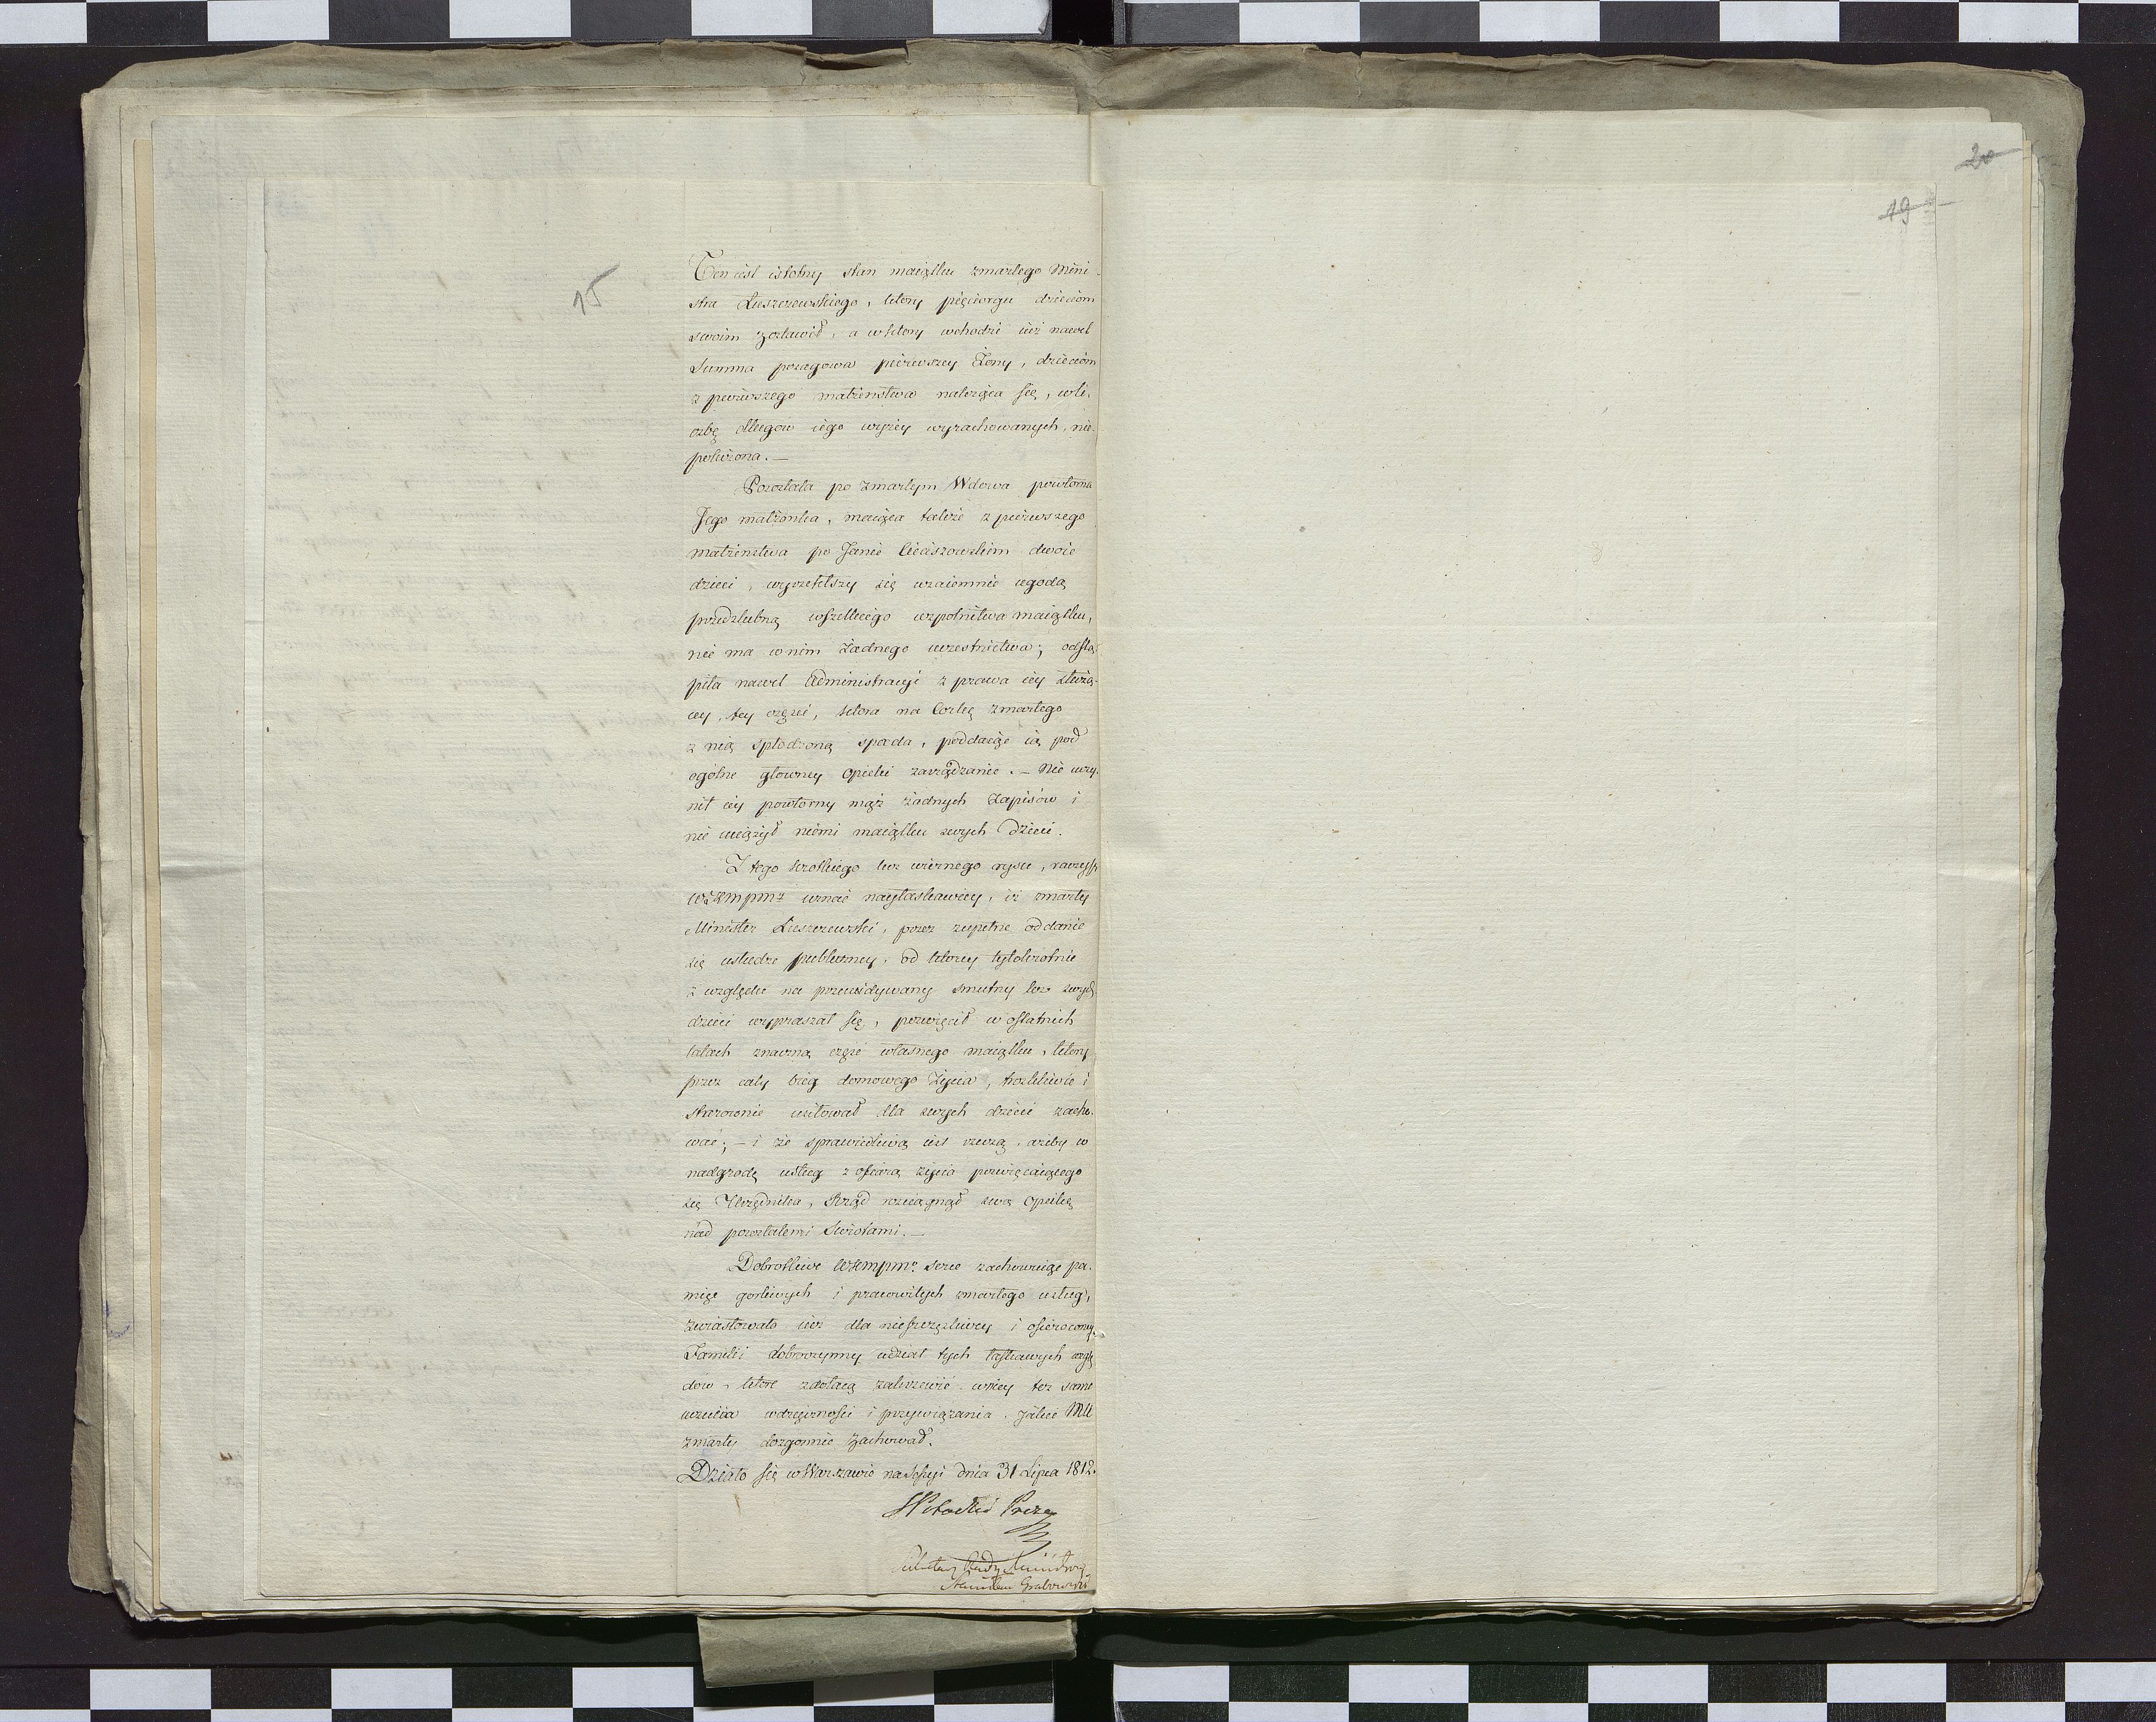 20
19
15
Ten iest istotny stan maiątku zmarłego Mini-
stra Łuszczewskiego, ktory pięciorgu dzieciom
swoim zostawił, a w ktory wchodzi iuż nawet
Summa posagowa pierwszey Żony, dzieciom
z pierwszego małżeństwa należąca się, w li-
czbę długow iego wyżey wyrachowanych, nie
położona.—
Pozostała po zmarłym Wdowa powtorna
Jego małżonka, maiąca także z pierwszego
małżenstwa po Janie Cieciszowskim dwoie
dzieci, wyrzekłszy się wzaiemnie ugodą
przedslubną wszelkiego wspolnictwa maiątku,
nie ma w nim żadnego uczestnictwa; odstą-
piła nawet Administracyi z prawa iey służą-
cey, tey części, ktora na Corkę zmarłego
z nią spłodzoną spada, poddaiąc ią pod
ogólne głowney opieki zarządzanie.— Nie uczy-
nił iey powtorny mąż żadnych Zapisów i
nie uciążył niemi maiątku swych Dzieci.
Z tego krotkiego lecz wiernego rysu, raczysz
WKMPMż uznać nayłaskawiey, iż zmarły
Minister Łuszczewski, przez zupełne oddanie
się usłudze publiczney, od ktorey tylokrotnie
z względu na przewidywany smutny los swych
dzieci wypraszał się, poswięcił w ostatnich
latach znaczną część własnego maiątku, ktory
przez cały bieg domowego Życia, troskliwie i
starownie usiłował dla swych dzieci zacho-
wać;— i że sprawiedliwą iest rzeczą, ażeby w
nadgrodę usług z ofiarą życia poswięcaiącego
się Urzędnika, Rząd rozciągnął swą opiekę
nad pozostałemi Sierotami.—
Dobrotliwe WKMPMo serce zachowuiąc pa-
mięć gorliwych i pracowitych zmarłego usług,
zwiastowało iuż dla nieszczęśliwey i osierociałey
Familii dobroczynny udział tych łaskawych wzglę
dów, ktore zdołaią zakrzewić w niey też same
uczucia wdzięczności i przywiązania, jakie MU
zmarły dozgonnie zachował.
Działo się w Warszawie na Sessyi dnia 31 Lipca 1812.
SPotocki Prezes
Sekretarz Rady Ministrow
Stanisław Grabowski